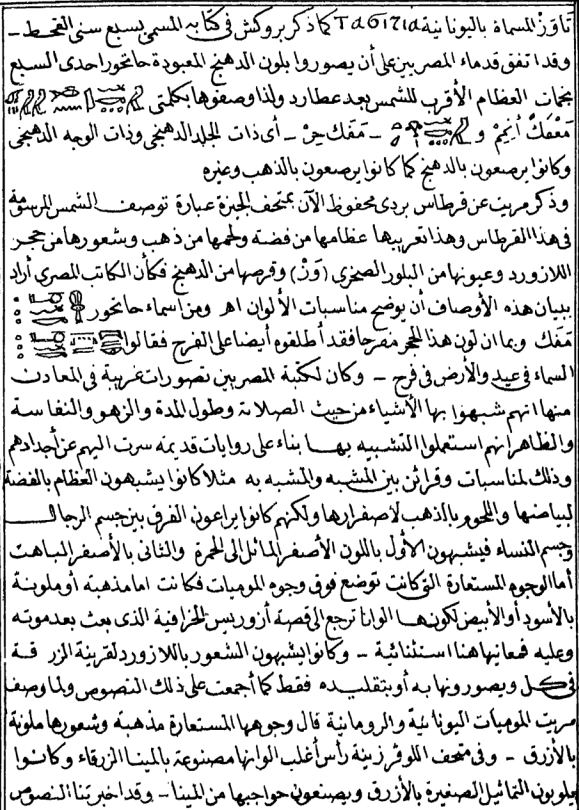 تاوَزْ المسماة باليونانية كما ذكر بروكش فى كتابه المسمى بسبع سنى القحط –
وقد اتفق قدماء المصريين على أن يصوروا بلون الدهنج المعبودة حاتحور احدى السبع
بجمات العظام الأقرب للشمس بعد عطارد ولذا وصفوها بكلمتى
مَفْعَكْ أنِمْ و – مَفَك حِرْ – أى ذات الجلد الدهنجى وذات الوجه الدهنجى
وكانوا يرصعون بالدهنج كما كانوا يرصعون بالذهب وغيره
وذكر مريت عن قرطاس بردى محفوظ الآن بمتحف الجيزة عبارة توصف الشمس المرسومة
فى هذا القرطاس وهذا تعريبها عظامها من فضة ولحمها من ذهب وشعورها من حجر
اللازورد وعيونها من البلور الصخرى (وَزْ) وقرصها من الدهنج فكأن الكاتب المصرى أراد
ببيان هذه الأوصاف أن يوضح مناسبات الألوان اهـ ومن اسماء حاتحور
مَفَك وبما ان لون هذا الحجر مفرحا فقد أطلقوه أيضا على الفرح فقالوا
السماء فى عيد والأرض فى فرح – وكان لكتبة المصريين تصورات غريبة فى المعادن
منها انهم شبهوا بها الأشياء من حيث الصلابة وطول المدة والزهو والنفاسة
والظاهر انهم استعملوا التشبيه بها بناء على روايات قديمة سرت اليهم عن أجدادهم
وذلك لمناسبات وقرائن بين المشبه والمشبه به مثلا كانوا يشبهون العظام بالفضة
لبياضها واللحوم بالذهب لاصفرارها ولكنهم كانوا يراعون الفرق بين جسم الرجال
وجسم النساء فيشبهون الأول باللون الأصفر المائل الى الحمرة والثانى بالأصفر الباهت
أما الوجوه المستعارة التى كانت توضع فوق وجوه الموميات فكانت اما مذهبة أو ملونة
بالأسود أو الأبيض لكونها الوانا ترجع الى قصة أزوريس الخرافية الذى بعث بعد موته
وعليه فمعانيها هنا استثنائية – وكانوا يشبهون الشعور باللازورد لقرينة الزرقة
فى كل ويصورونها به أو بتقليده فقط كما أجمعت على ذلك النصوص ولما وصف
مريت الموميات اليونانية والرومانية قال وجوهها المستعارة مذهبة وشعورها ملونة
بالأزرق – وفى متحف اللوفر زينة رأس أغلب الوانها مصنوعة بالمينا الزرقاء وكانوا
يلونون التماثيل الصغيرة بالأزرق ويصنعون حواجبها من المينا – وقد اخبرتنا النصوص